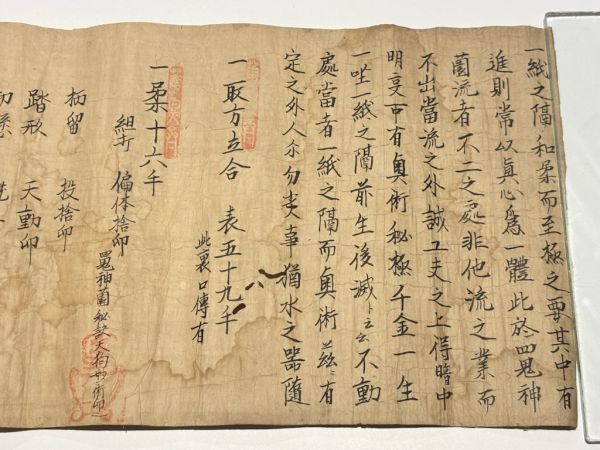 一紙之隔和柔而至極之要其中有
進則常以真心為一體此於四鬼神
薗流者不二之處非他流之業而
不出當流之外誠工夫之上得暗中
明变中有奥術秘極千金一生
一坐一紙之隔前生後滅ト云云不動
處當者一紙之隔而奥術茲ニ有
定之外人尓勿 事猶水之器随
一取方立合 表五十九手
此裏口傳有
一柔十六手
組打 偏体捨卯
鬼神薗秘 天狗妙術卯
柄留 投捨卯
踏形 天動卯